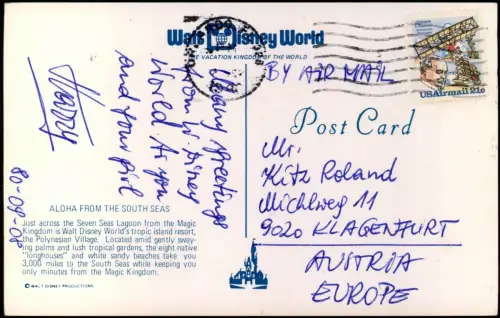 Walt Disney World
THE VACATION KINGDOM OF THE WORLD
BY AIR MAIL
USAirmail 21c
Many Greetings
from W. Disney
World to you
and your girl
Harry
80-09-08
Post Card
Mr.
Kitz Roland
Michlweg 11
9020 KLAGENFURT
AUSTRIA
EUROPE
ALOHA FROM THE SOUTH SEAS
Just across the Seven Seas Lagoon from the Magic
Kingdom is Walt Disney World's tropic island resort,
the Polynesian Village. Located amid gently sway-
ing palms and lush tropical gardens, the eight native
"longhouses" and white sandy beaches take you
3,000 miles to the South Seas while keeping you
only minutes from the Magic Kingdom.
© WALT DISNEY PRODUCTIONS